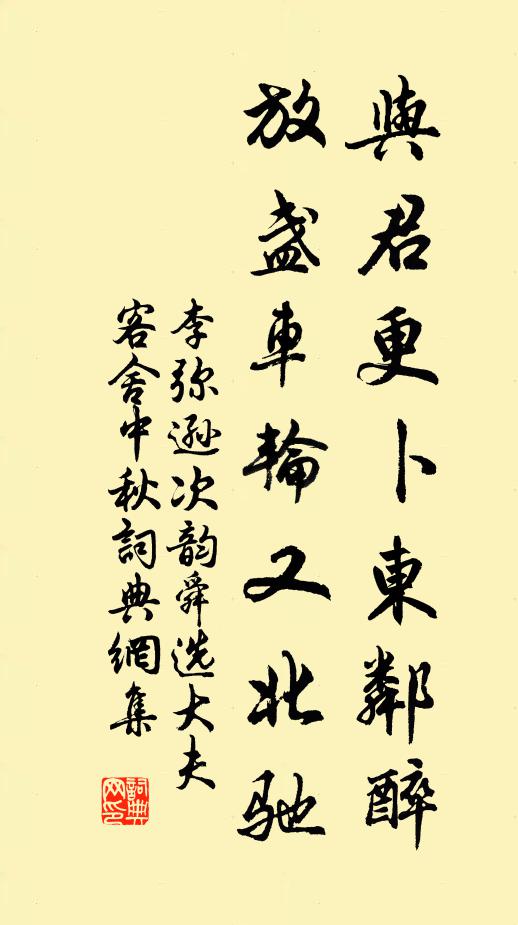 與君更卜東鄰醉
放盞車輪又北馳
李弥遜次韵舜选大夫
客舍中秋詞典網集
詞典
网印